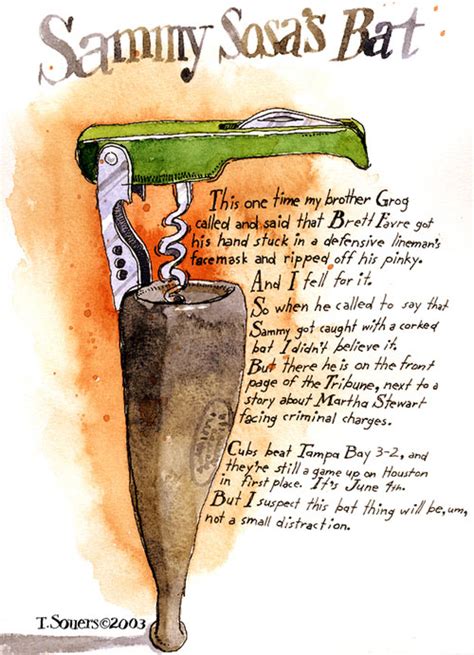 Sammy Sosa's Bat
This one time my brother Grog
called and said that Brett Favre got
his hand stuck in a defensive lineman's
facemask and ripped off his pinky.
And I fell for it.
So when he called to say that
Sammy got caught with a corked
bat I didn't believe it.
But there he is on the front
page of the Tribune, next to a
story about Martha Stewart
facing criminal charges.
Cubs beat Tampa Bay 3-2, and
they're still a game up on Houston
in first place. It's June 4th.
But I suspect this bat thing will be, um,
not a small distraction.
T. Souers©2003